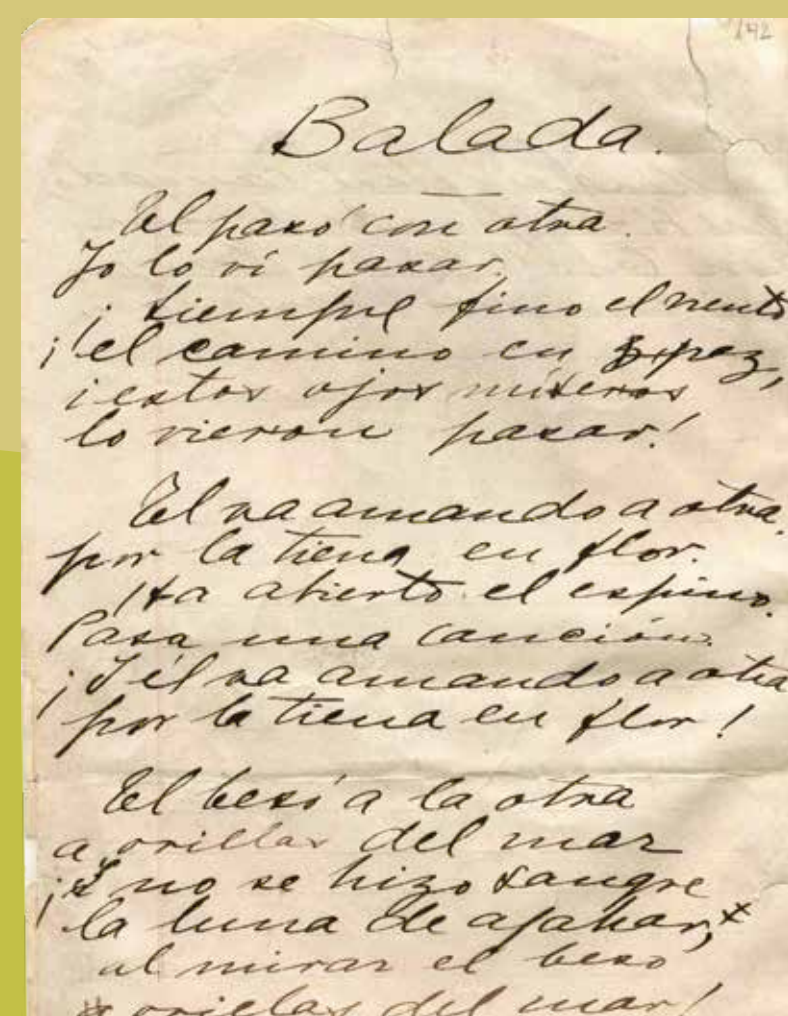 142
Balada.
El pasó con otra.
Yo lo ví pasar.
¡Siempre fino el viento
i el camino en paz,
i estos ojos míseros
lo vieron pasar!
El va amando a otra
por la tierra en flor.
Ha abierto el espino.
Pasa una canción.
¡I él va amando a otra
por la tierra en flor!
El besó a la otra
a orillas del mar
¡I no se hizo sangre
la luna de azahar,
al mirar el beso
a orillas del mar!